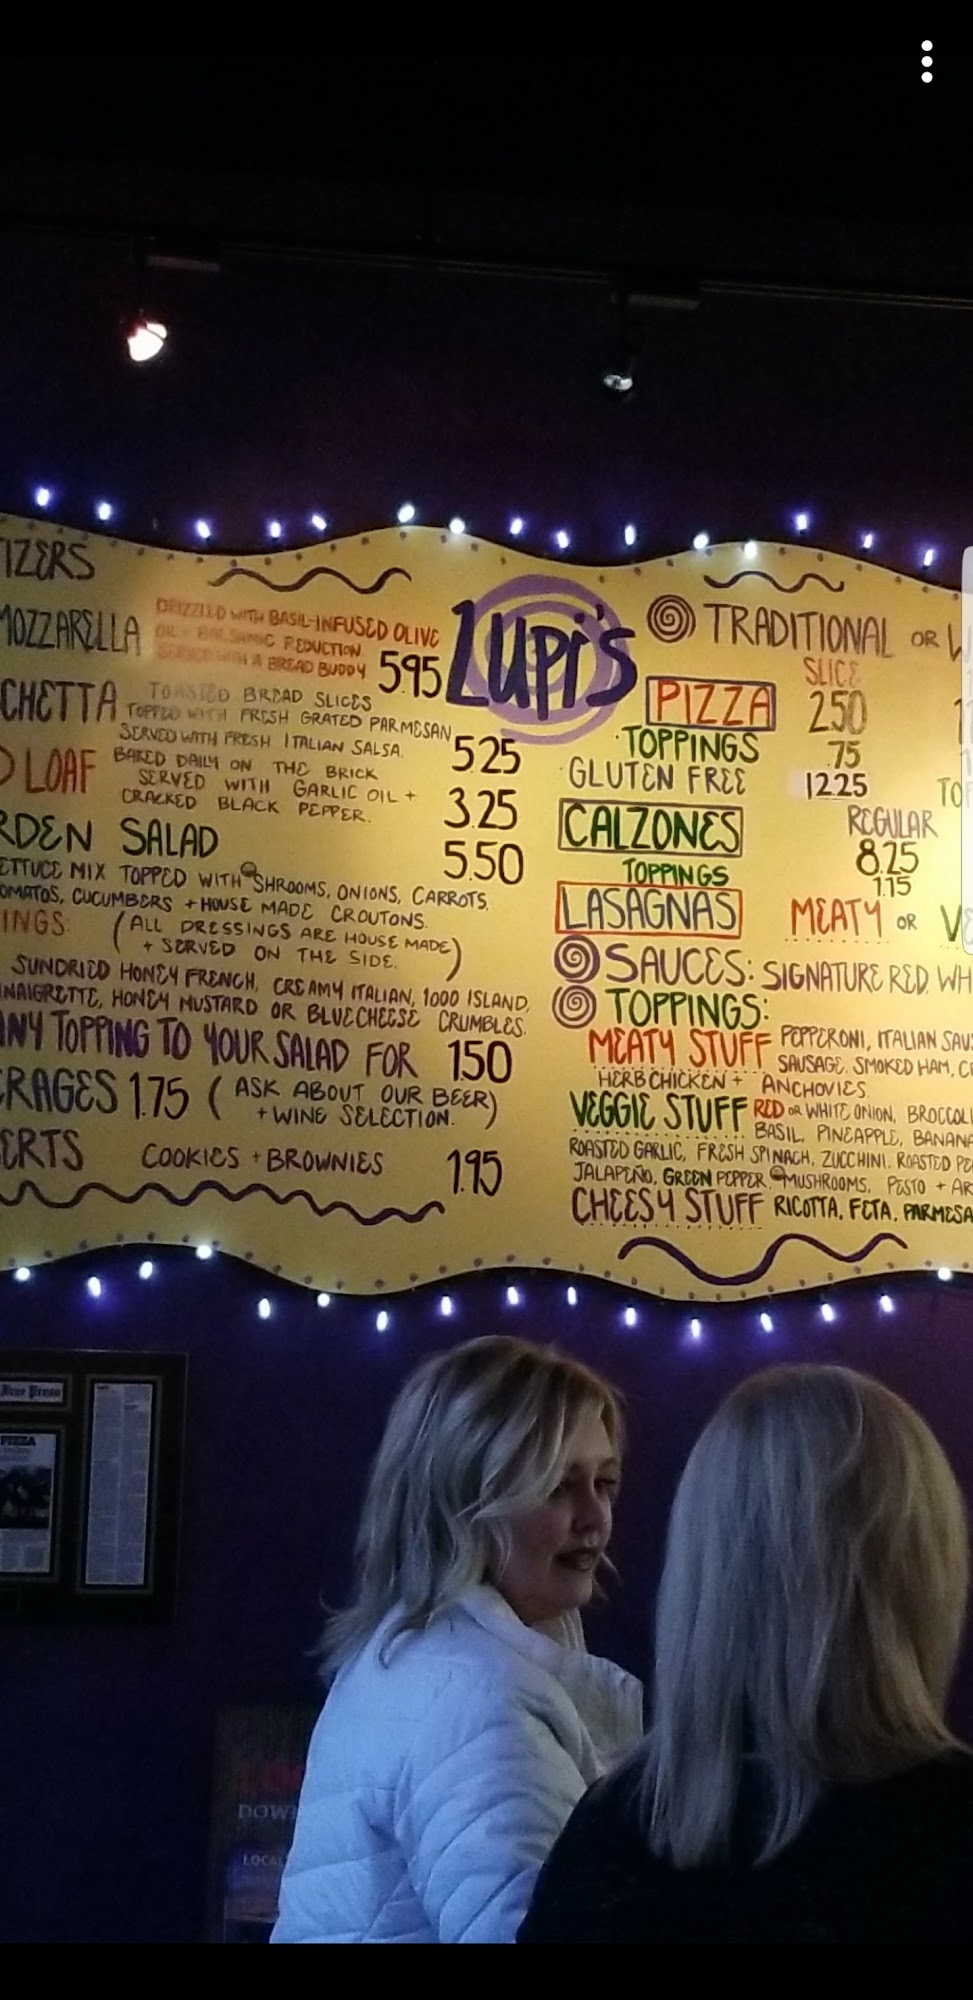 IZERS
MOZZARELLA
DRIZZLED WITH BASIL-INFUSED OLIVE
OIL + BALSAMIC REDUCTION.
SERVED WITH A BREAD BUDDY 5.95
CHETTA
TOASTED BREAD SLICES
TOPPED WITH FRESH GRATED PARMESAN
SERVED WITH FRESH ITALIAN SALSA. 5.25
LOAF
BAKED DAILY ON THE BRICK
SERVED WITH GARLIC OIL +
CRACKED BLACK PEPPER. 3.25
RDEN SALAD 5.50
ETTUCE MIX TOPPED WITH SHROOMS, ONIONS, CARROTS,
OMATOS, CUCUMBERS + HOUSE MADE CROUTONS.
INGS: (ALL DRESSINGS ARE HOUSE MADE
+ SERVED ON THE SIDE.)
SUNDRIED HONEY FRENCH, CREAMY ITALIAN, 1000 ISLAND,
NAIGRETTE, HONEY MUSTARD OR BLUECHEESE CRUMBLES.
ANY TOPPING TO YOUR SALAD FOR 1.50
ERAGES 1.75 (ASK ABOUT OUR BEER
+ WINE SELECTION.)
ERTS COOKIES + BROWNIES 1.95
Lupi's
TRADITIONAL OR
SLICE
PIZZA 2.50
TOPPINGS .75
GLUTEN FREE 12.25
REGULAR
CALZONES 8.25
TOPPINGS 1.15
LASAGNAS MEATY OR VE
SAUCES: SIGNATURE RED, WH
TOPPINGS:
MEATY STUFF PEPPERONI, ITALIAN SAUS
SAUSAGE, SMOKED HAM,
HERB CHICKEN + ANCHOVIES.
VEGGIE STUFF RED OR WHITE ONION, BROCCOL
BASIL, PINEAPPLE, BANANA
ROASTED GARLIC, FRESH SPINACH, ZUCCHINI, ROASTED PE
JALAPEÑO, GREEN PEPPER, MUSHROOMS, PESTO + AR
CHEESY STUFF RICOTTA, FETA, PARMESA
Free Press
PIZZA
DOW
LOCAL